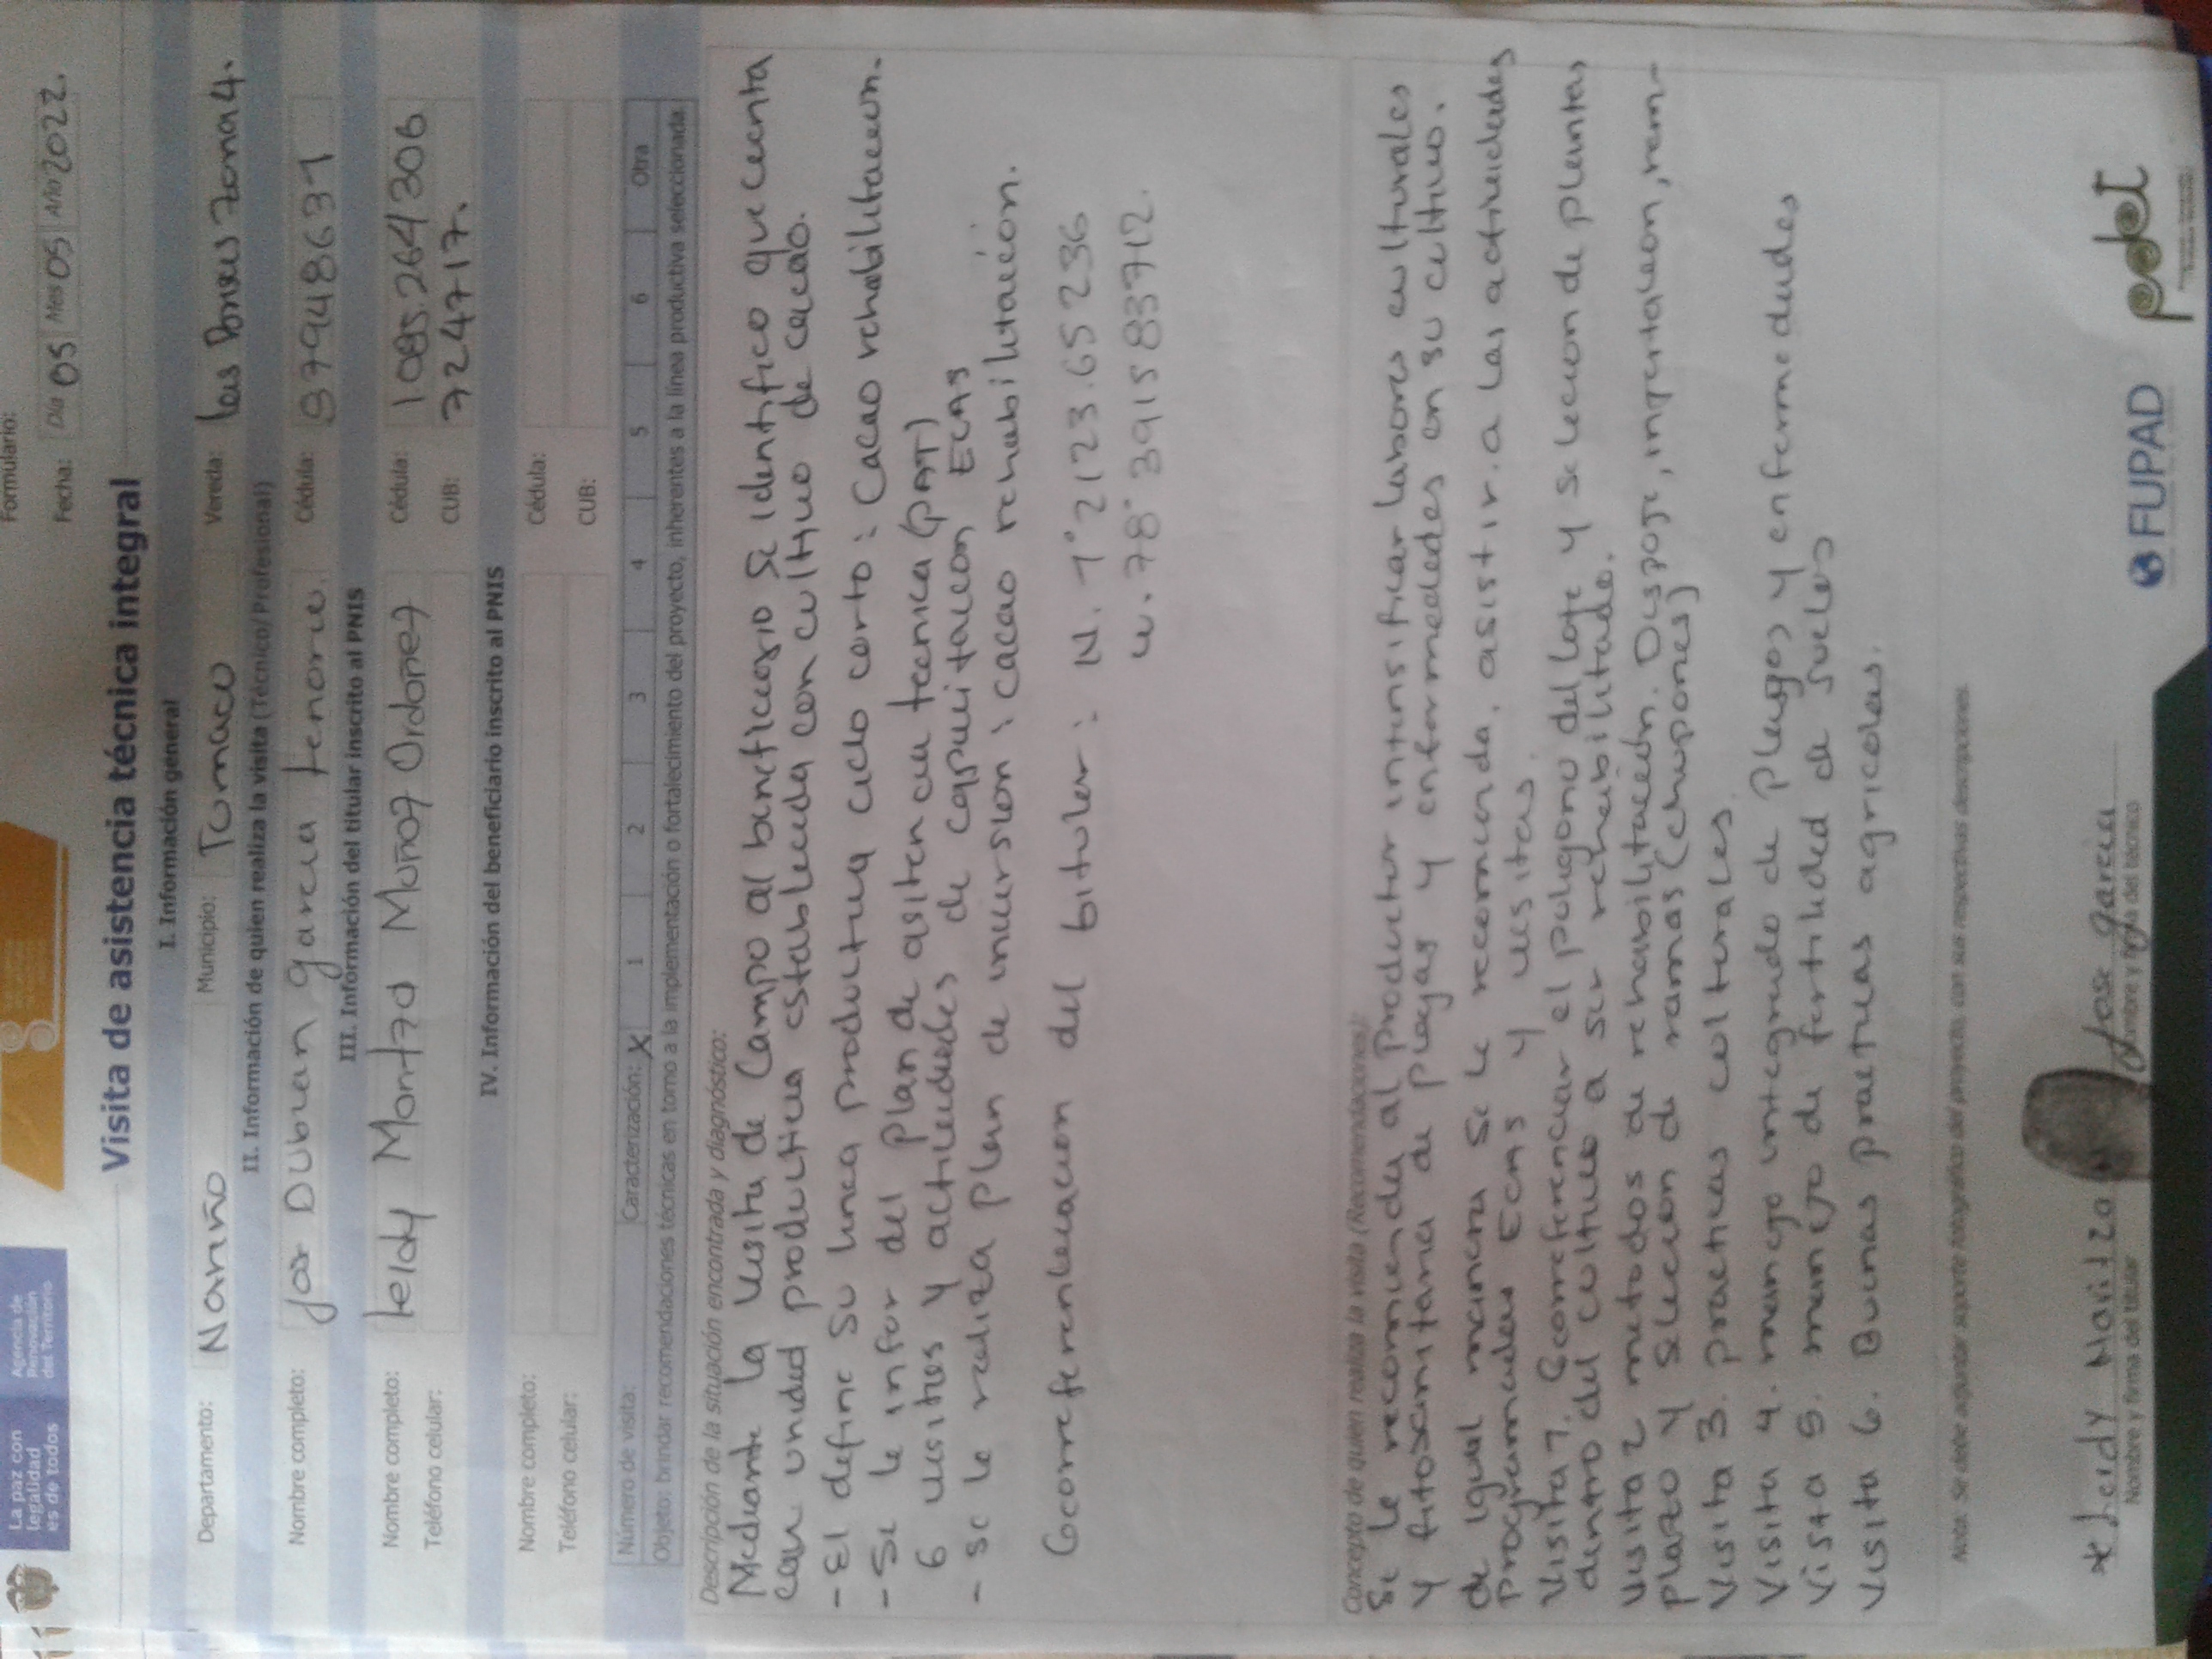 La paz con
legalidad
es de todos
Agencia de
Renovación
del Territorio
Formulario:
Fecha: Día 05 Mes 05 Año 2022.
Visita de asistencia técnica integral
I. Información general
Departamento: Nariño Municipio: Tumaco Vereda: las Brisas zona 4.
II. Información de quien realiza la visita (Técnico/ Profesional)
Nombre completo: Jose Duban garcia tenorio Cédula: 87948631
III. Información del titular inscrito al PNIS
Nombre completo: leidy Maritza Muñoz Ordoñez Cédula: 1085.264306
Teléfono celular: CUB: 7244717.
IV. Información del beneficiario inscrito al PNIS
Nombre completo: Cédula:
Teléfono celular: CUB:
Número de visita: Caracterización: X 1 2 3 4 5 6 Otra
Objeto: brindar recomendaciones técnicas en torno a la implementación o fortalecimiento del proyecto, inherentes a la línea productiva seleccionada.
Descripción de la situación encontrada y diagnóstico:
Mediante la visita de Campo al beneficiario Se identifico que cuenta
con unidad productiva establecida con cultivo de cacao.
- El define su linea productiva ciclo corto: Cacao rehabilitacion.
- Se le infor del plan de asitencia tecnica (PAT)
6 visitas y actividades de capacitacion ECAS
- se le realiza plan de inversion: cacao rehabilitación.
Georreferenciacion del titular: N. 1° 2123.65236
w. 78° 3915 83712.
Concepto de quien realiza la visita (Recomendaciones):
Se le recomienda al Productor intensificar labores culturales
y fitosanitaria de plagas y enfermedades en su cultivo.
de igual manera se le recomienda. asistir. a las actividades
programadas ECAS y visitas.
Visita 1. Georreferenciar el poligono del lote y seleccion de plantas
dentro del cultivo a ser rehabilitado.
Visita 2 metodos de rehabilitación. Despoje, injertacion, rem-
plazo y seleccion de ramas (chupones)
Visita 3. practicas culturales
Visita 4. manejo integrado de plagas y enfermedades
Vista 5. manejo de fertilidad de suelos
Visita 6. Buenas practicas agricolas.
Nota: Se debe adjuntar soporte fotográfico del proyecto, con sus respectivas descripciones.
Leidy Maritza M Jose garcia
Nombre y firma del titular Nombre y firma del técnico
FUPAD
pdet